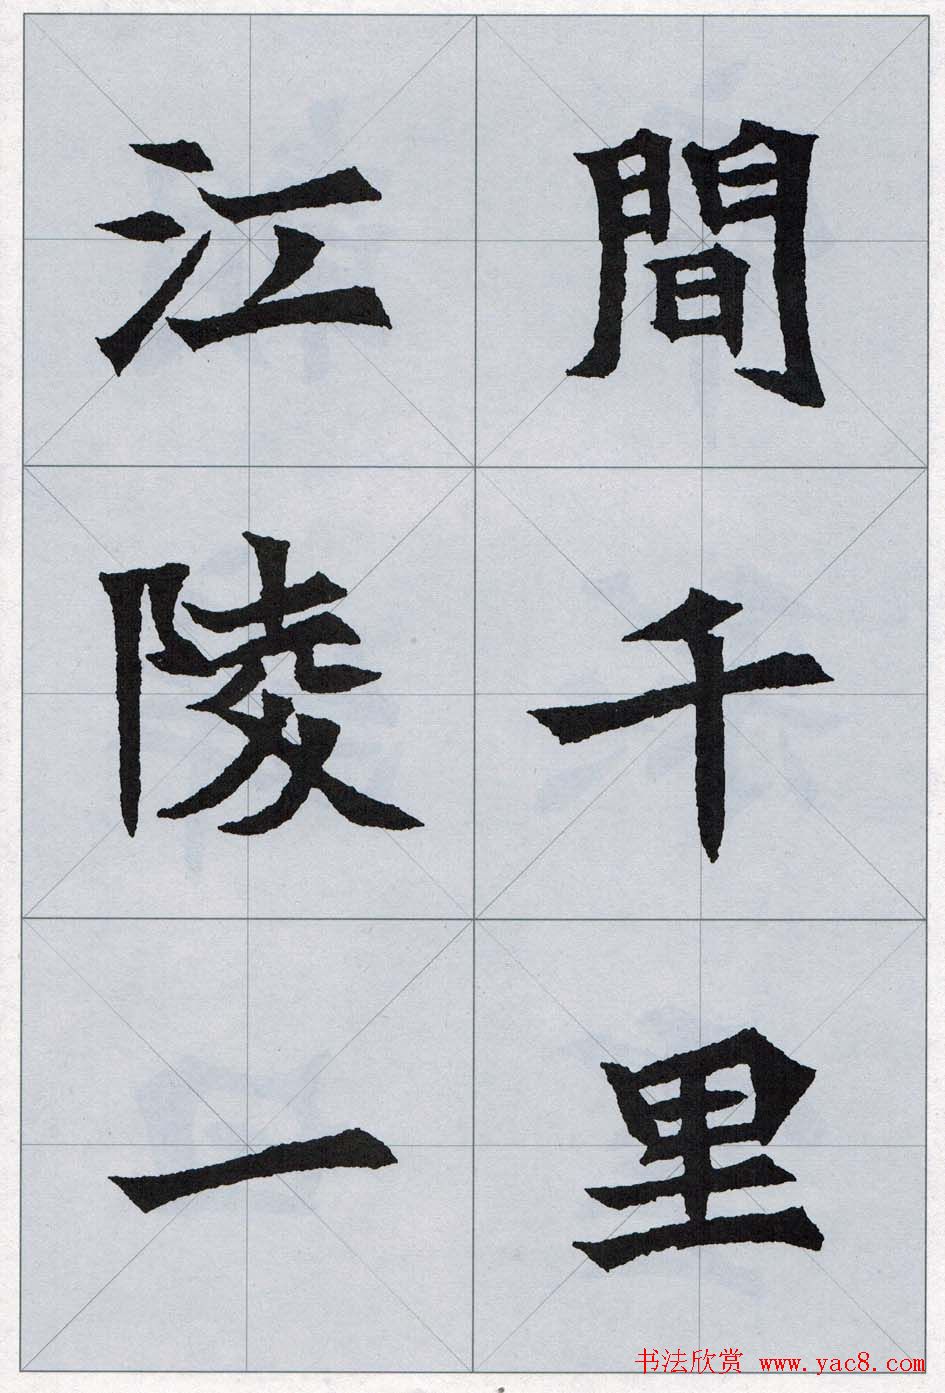 間千里
江陵一
书法欣赏 www.yac8.com